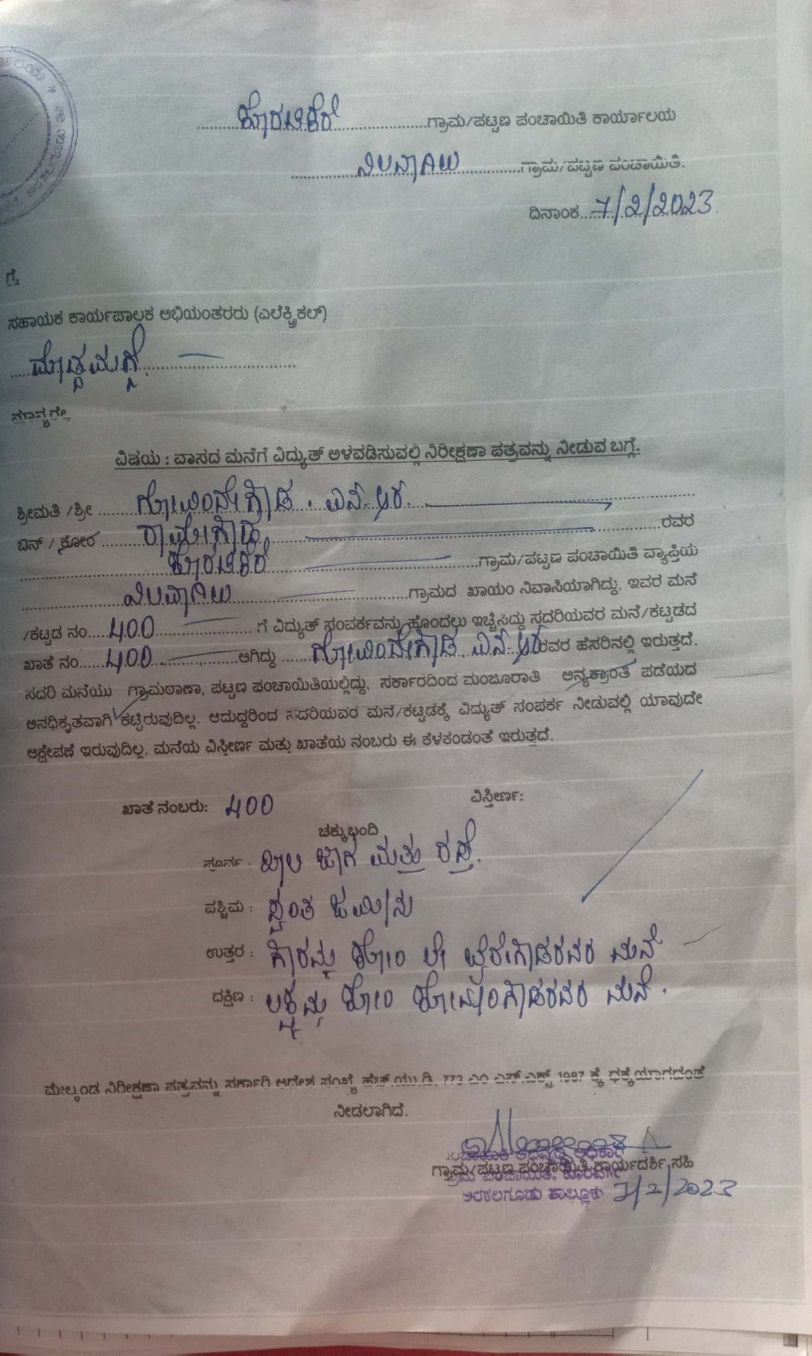 ಗ್ರಾಮ/ಪಟ್ಟಣ ಪಂಚಾಯಿತಿ ಕಾರ್ಯಾಲಯ
ನಿಲವಾಗಿಲು ಗ್ರಾಮ/ಪಟ್ಟಣ ಪಂಚಾಯಿತಿ.
ದಿನಾಂಕ 7/2/2023
ಗೆ,
ಸಹಾಯಕ ಕಾರ್ಯಪಾಲಕ ಅಭಿಯಂತರರು (ಎಲೆಕ್ಟ್ರಿಕಲ್)
ಮಾನ್ಯರೇ,
ವಿಷಯ : ವಾಸದ ಮನೆಗೆ ವಿದ್ಯುತ್ ಅಳವಡಿಸುವಲ್ಲಿ ನಿರೀಕ್ಷಣಾ ಪತ್ರವನ್ನು ನೀಡುವ ಬಗ್ಗೆ.
ಶ್ರೀಮತಿ /ಶ್ರೀ ಗೋವಿಂದೇಗೌಡ . ಎನ್.ಆರ್.
ಬಿನ್ / ಕೋರ ರಾಮೇಗೌಡ ರವರ
ಗ್ರಾಮ/ಪಟ್ಟಣ ಪಂಚಾಯಿತಿ ವ್ಯಾಪ್ತಿಯ
ನಿಲವಾಗಿಲು ಗ್ರಾಮದ ಖಾಯಂ ನಿವಾಸಿಯಾಗಿದ್ದು, ಇವರ ಮನೆ
/ಕಟ್ಟಡ ನಂ. 400 ಗೆ ವಿದ್ಯುತ್ ಸಂಪರ್ಕವನ್ನು ಹೊಂದಲು ಇಚ್ಚಿಸಿದ್ದು ಸದರಿಯವರ ಮನೆ/ಕಟ್ಟಡದ
ಖಾತೆ ನಂ. 400 ಆಗಿದ್ದು ಗೋವಿಂದೇಗೌಡ ಎನ್.ಆರ್ ರವರ ಹೆಸರಿನಲ್ಲಿ ಇರುತ್ತದೆ.
ಸದರಿ ಮನೆಯು ಗ್ರಾಮಠಾಣಾ, ಪಟ್ಟಣ ಪಂಚಾಯಿತಿಯಲ್ಲಿದ್ದು, ಸರ್ಕಾರದಿಂದ ಮಂಜೂರಾತಿ ಅನ್ಯಕ್ರಾಂತ ಪಡೆಯದ
ಅನಧಿಕೃತವಾಗಿ ಕಟ್ಟಿರುವುದಿಲ್ಲ. ಆದುದ್ದರಿಂದ ಸದರಿಯವರ ಮನೆ/ಕಟ್ಟಡಕ್ಕೆ ವಿದ್ಯುತ್ ಸಂಪರ್ಕ ನೀಡುವಲ್ಲಿ ಯಾವುದೇ
ಆಕ್ಷೇಪಣೆ ಇರುವುದಿಲ್ಲ. ಮನೆಯ ವಿಸ್ತೀರ್ಣ ಮತ್ತು ಖಾತೆಯ ನಂಬರು ಈ ಕೆಳಕಂಡಂತೆ ಇರುತ್ತದೆ.
ಖಾತೆ ನಂಬರು: 400 ವಿಸ್ತೀರ್ಣ:
ಚಕ್ಕುಬಂದಿ
ಪೂರ್ವ : ಖಾಲಿ ಜಾಗ ಮತ್ತು ರಸ್ತೆ.
ಪಶ್ಚಿಮ : ಸ್ವಂತ ಜಮೀನು
ಉತ್ತರ : ಗೌರಮ್ಮ ಕೋಂ ಲೇ ಮನೆ
ದಕ್ಷಿಣ : ಲಕ್ಷ್ಮಮ್ಮ ಕೋಂ ಮನೆ.
ಮೇಲ್ಕಂಡ ನಿರೀಕ್ಷಣಾ ಪತ್ರವನ್ನು ಸರ್ಕಾರಿ ಆದೇಶ ಸಂಖ್ಯೆ ಹೆಚ್.ಯು.ಡಿ. 773 ಎಂ ಎನ್.ಎಕ್ಸ್ 1987 ಕ್ಕೆ ಧಕ್ಕೆಯಾಗದಂತೆ
ನೀಡಲಾಗಿದೆ.
ಗ್ರಾಮ/ಪಟ್ಟಣ ಪಂಚಾಯಿತಿ ಕಾರ್ಯದರ್ಶಿ ಸಹಿ
ಅರಕಲಗೂಡು ತಾಲ್ಲೂಕು 7/2/2023